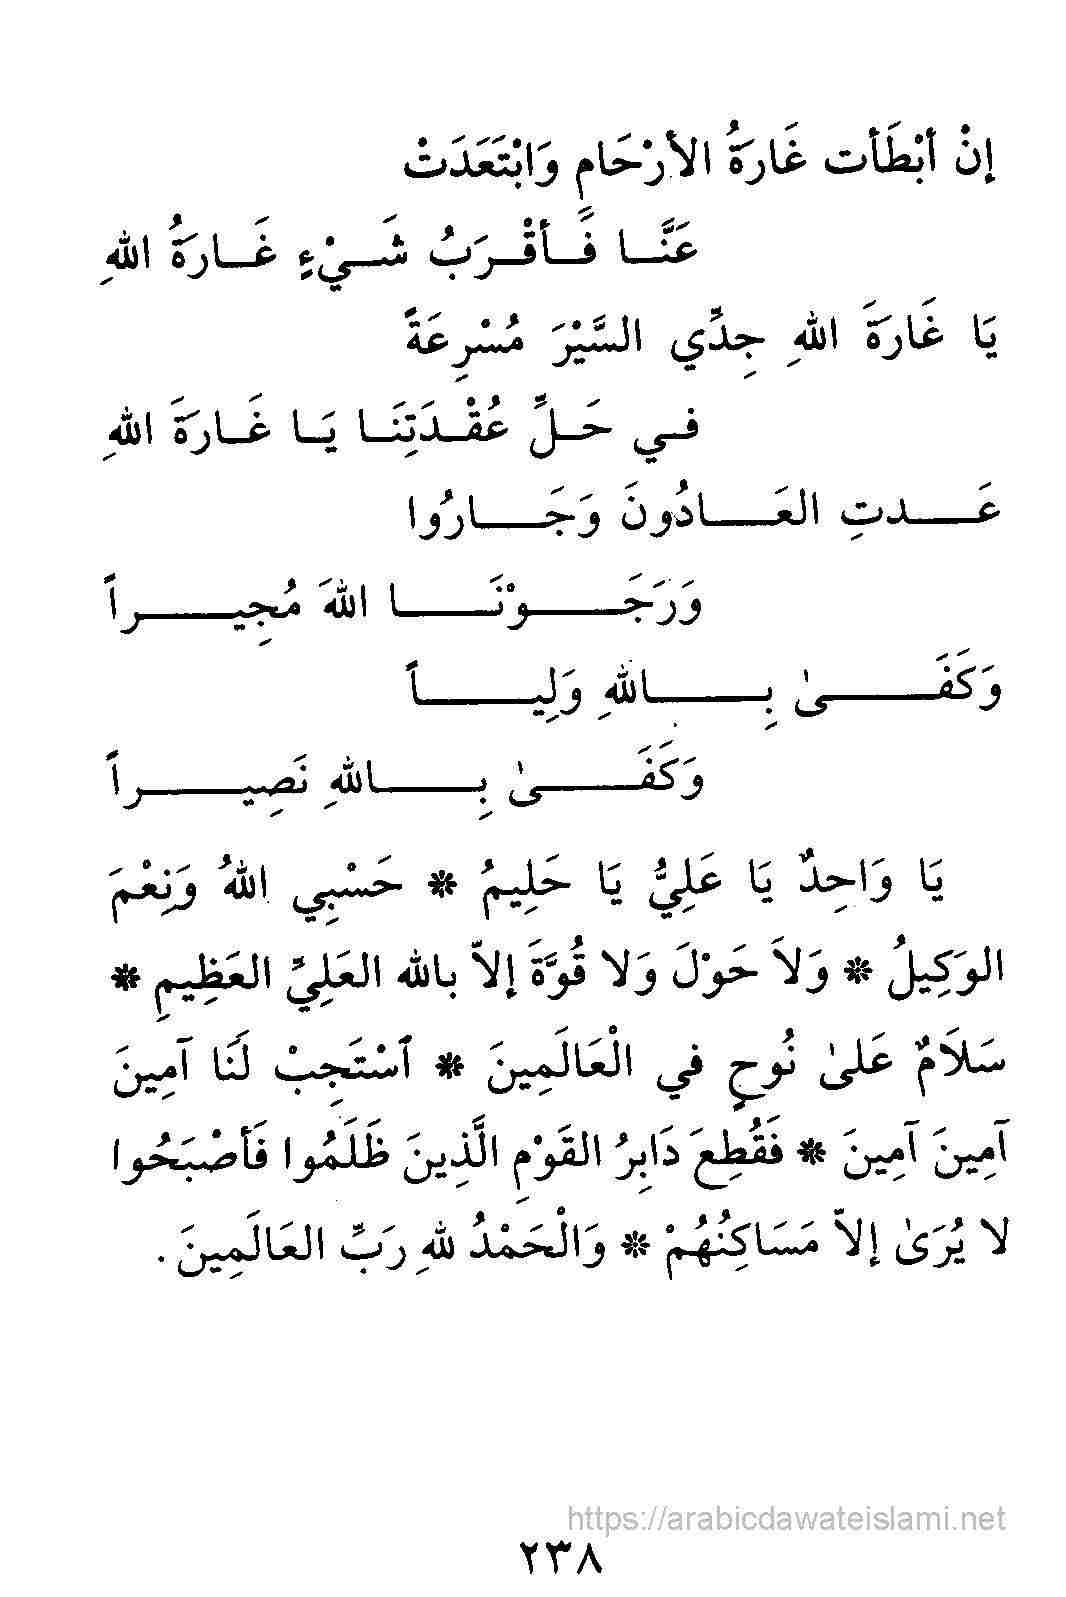 إنْ أبْطَأت غَارَةُ الأرْحَامِ وَابْتَعَدَتْ
عَنَّا فَأقْرَبُ شَيْءٍ غَارَةُ اللهِ
يَا غَارَةَ اللهِ جِدِّي السَّيْرَ مُسْرِعَةً
في حَلِّ عُقْدَتِنَا يَا غَارَةَ اللهِ
عَدتِ العَادُونَ وَجَارُوا
وَرَجَوْنَا اللهَ مُجِيراً
وَكَفَىٰ بِاللهِ وَلِياً
وَكَفَىٰ بِاللهِ نَصِيراً
يَا وَاحِدٌ يَا عَلِيُّ يَا حَلِيمُ ❊ حَسْبِي اللهُ وَنِعْمَ
الوَكِيلُ ❊ وَلاَ حَوْلَ وَلا قُوَّةَ إلاّ بالله العَلِيِّ العَظِيمِ ❊
سَلاَمٌ عَلىٰ نُوحٍ في الْعَالَمِينَ ❊ ٱسْتَجِبْ لَنَا آمِينَ
آمِينَ آمِينَ ❊ فَقُطِعَ دَابِرُ القَوْمِ الَّذِينَ ظَلَمُوا فَأصْبَحُوا
لا يُرَىٰ إلاّ مَسَاكِنُهُمْ ❊ وَالْحَمْدُ للهِ رَبِّ العَالَمِينَ .
https://arabicdawateislami.net
٢٣٨